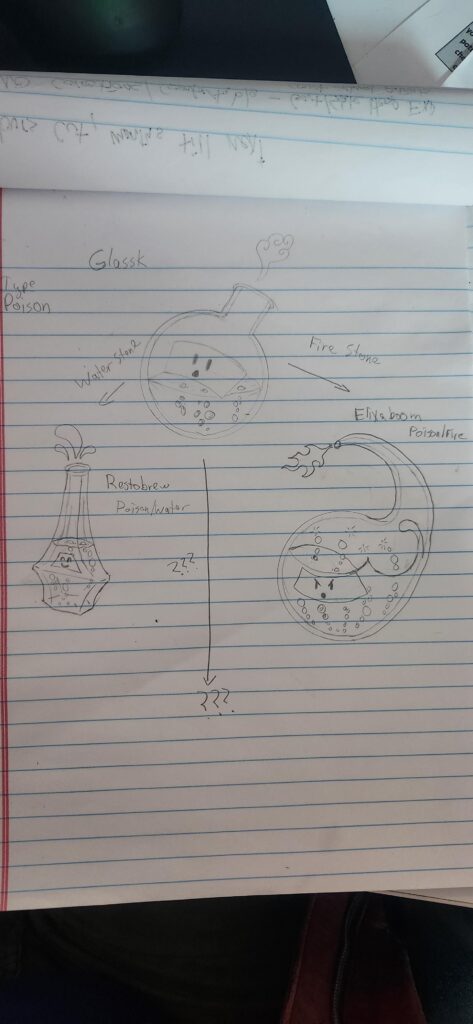 Glassk
Type
Poison
Water Stone
Fire Stone
Elixaboom
Poison/Fire
Restobrew
Poison/Water
???
???